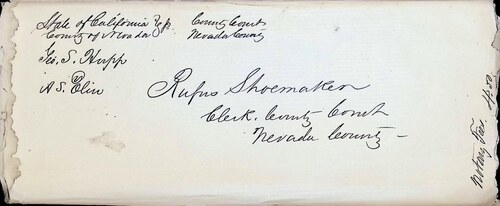 State of California
County of Nevada
County Court
Nevada County
Geo. S. Hupp
A S.
Rufus Shoemaker
Clerk. County Court
Nevada County -
Notary Fees